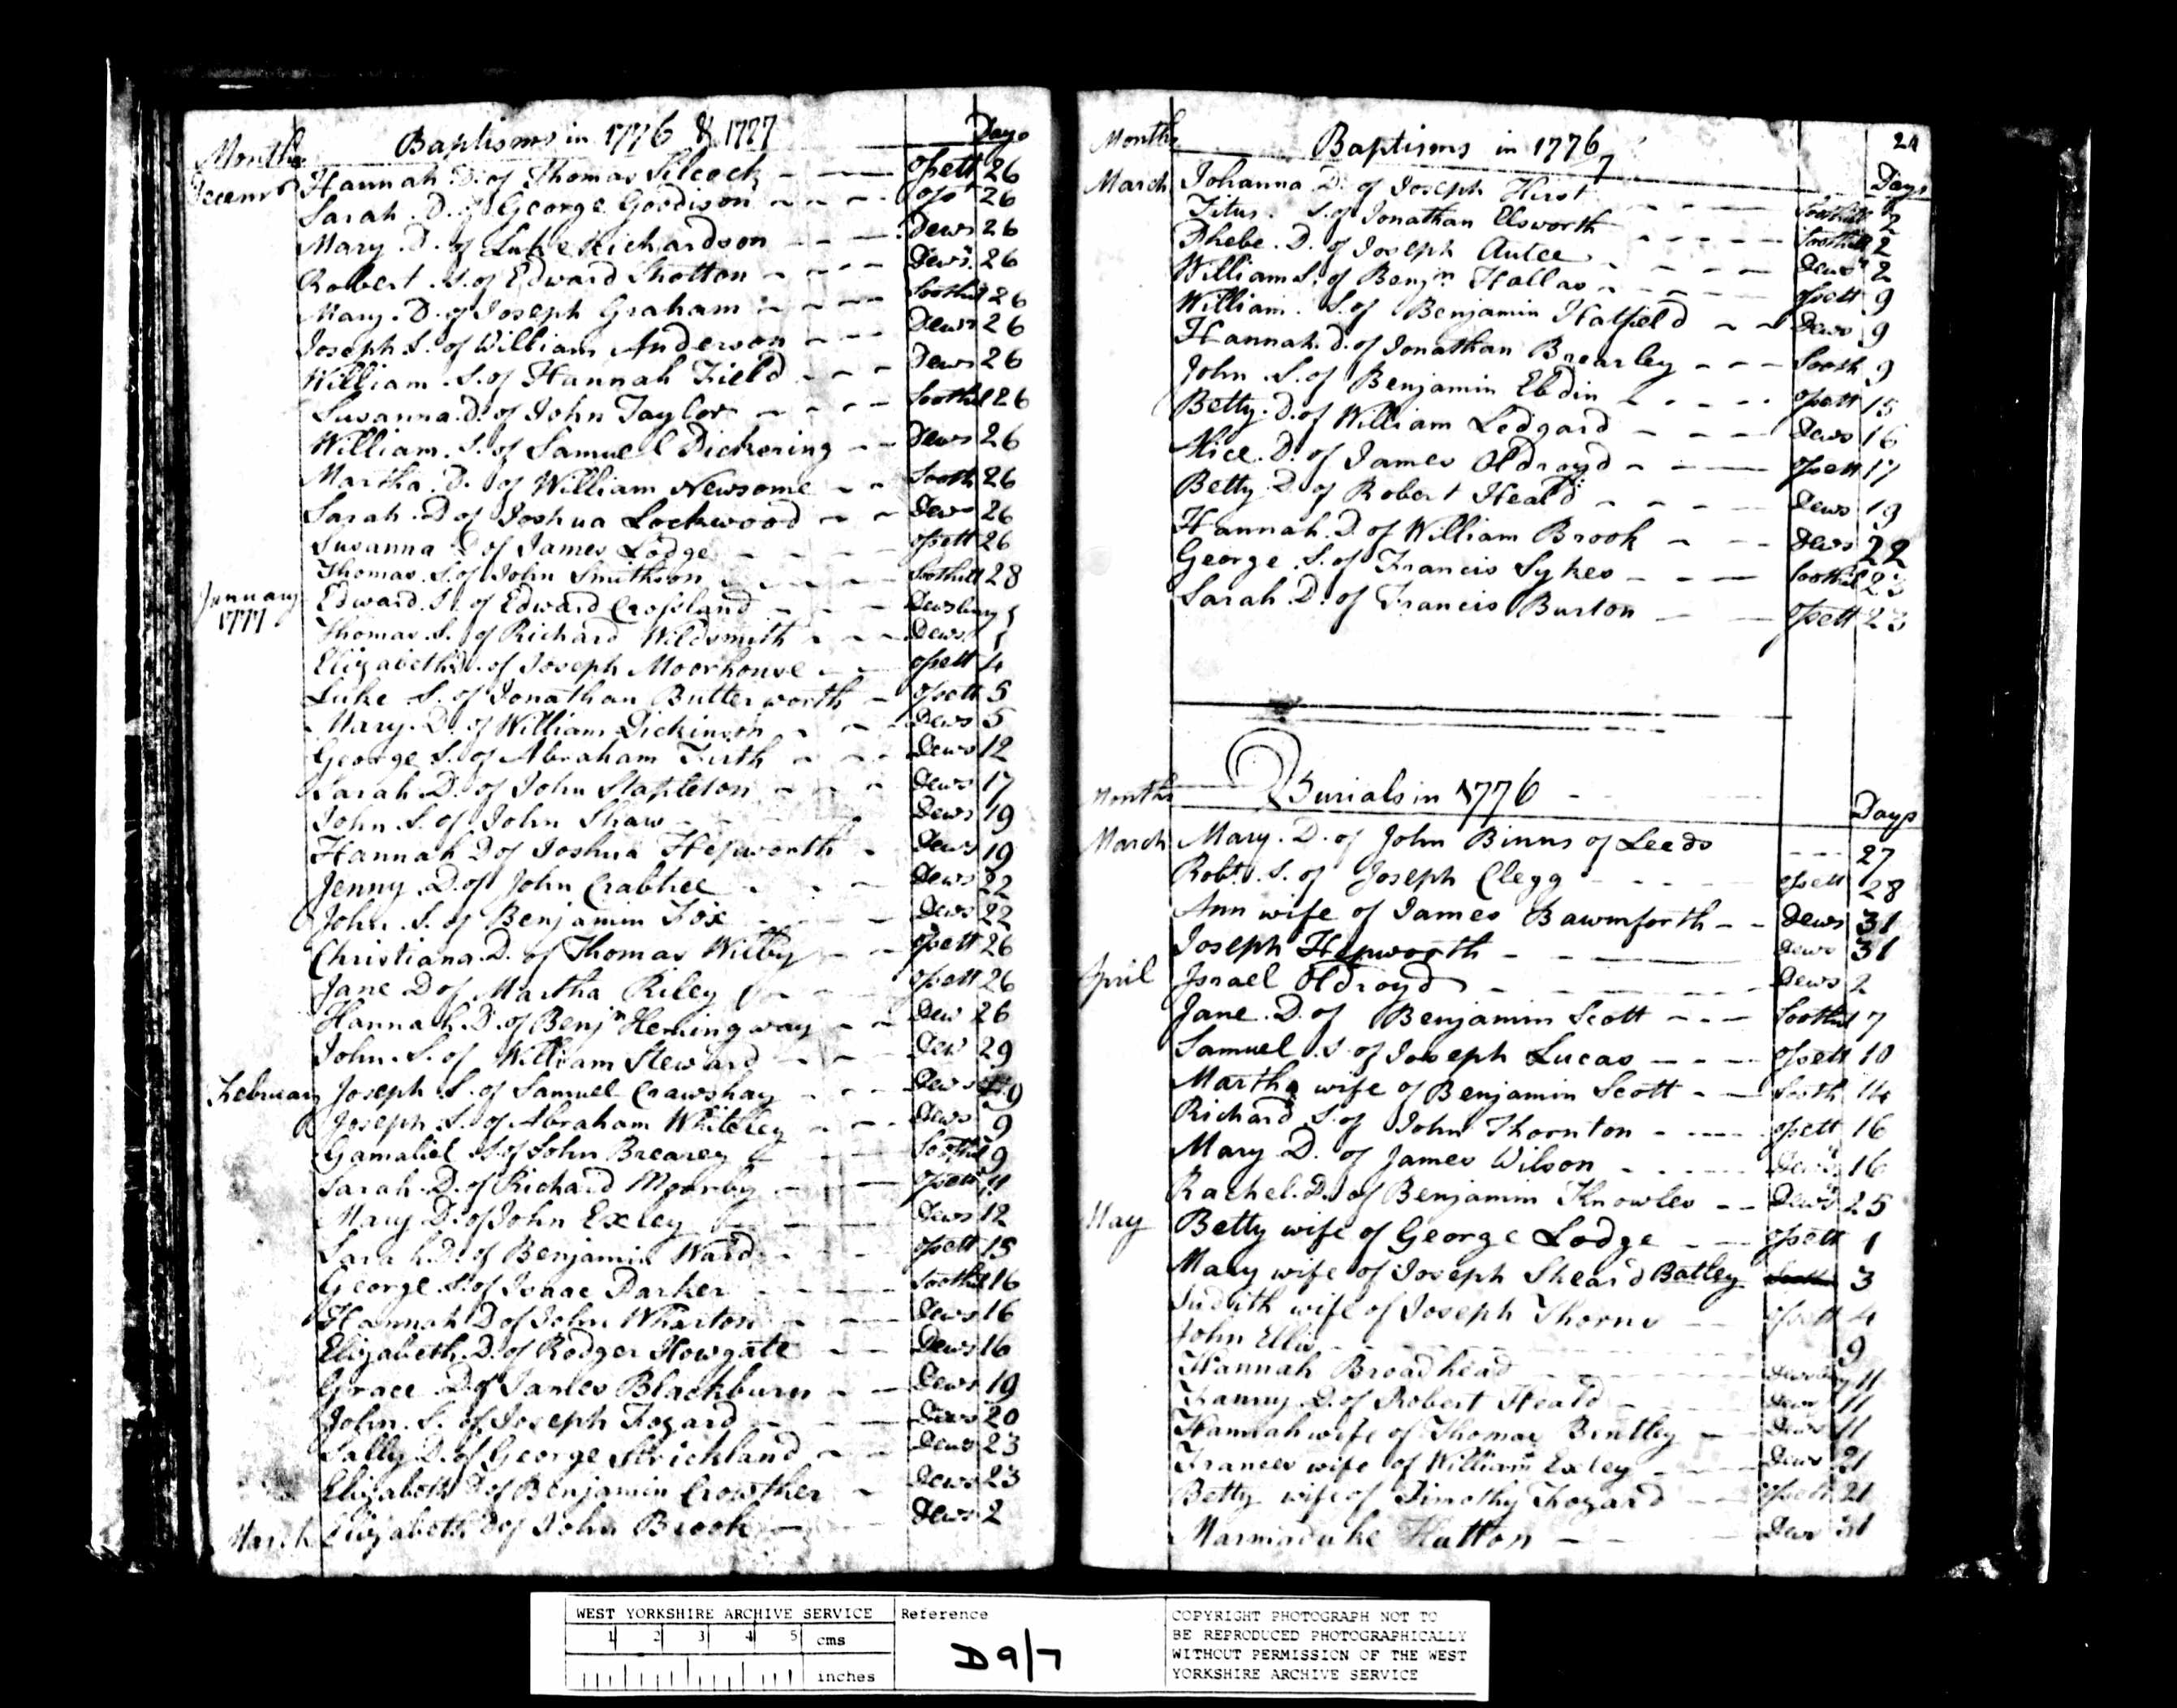 Months Baptisms in 1776 & 1777 Days
Decemr Hannah D. of Thomas Silcock Ossett 26
Sarah D. of George Goodison Osst 26
Mary D. of Luke Richardson Dews 26
Robert S. of Edward Shotton Dews 26
Mary D. of Joseph Graham Soothil 26
Joseph S. of William Anderson Dews 26
William S. of Hannah Field Dews 26
Susanna D. of John Taylor Soothil 26
William S. of Samuel Pickering Dews 26
Martha D. of William Newsome Sooth 26
Sarah D of Joshua Lockwood Dews 26
Susanna D of James Lodge Ossett 26
Thomas S. of John Smithson Soothill 28
January 1777 Edward S. of Edward Crossland Dewsbury 1
Thomas S. of Richard Wildsmith Dews 1
Elizabeth D. of Joseph Moorhouse Ossett 4
Luke S. of Jonathan Butterworth Ossett 5
Mary D. of William Dickinson Dews 5
George S. of Abraham Firth Dews 12
Sarah D. of John Stapleton Dews 17
John S. of John Shaw Dews 19
Hannah D of Joshua Hepworth Dews 19
Jenny D. of John Crabtree Dews 22
John S. of Benjamin Fox Dews 22
Christiana D. of Thomas Wilby Ossett 26
Jane D of Martha Riley Ossett 26
Hannah D. of Benjn Hemingway Dew 26
John S. of William Steward Dew 29
February Joseph S. of Samuel Crawshay Dews 9
Joseph S. of Abraham Whiteley Dews 9
Gamaliel S of John Brearey Soothil 9
Sarah D. of Richard Moorby Ossett 11
Mary D. of John Exley Dews 12
Sarah D. of Benjamin Ward Ossett 15
George S. of Isaac Parker Soothil 16
Hannah D of John Wharton Dews 16
Elizabeth D. of Rodger Howgate Dews 16
Grace D of James Blackburn Dews 19
John S. of Joseph Fozard Dews 20
Sally D. of George Strickland Dews 23
Elizabeth D of Benjamin Crowther Dews 23
March Elizabeth D of John Brook Dews 2
24
Months Baptisms in 1776 7 Days
March Johanna D. of Joseph Hirst Soothill 2
Titus S. of Jonathan Elsworth Soothill 2
Phebe D. of Joseph Autee Dews 2
William S. of Benjn Hallas Ossett 9
William S. of Benjamin Hatfield Dews 9
Hannah D. of Jonathan Brearley Sooth 9
John S. of Benjamin Ebdin Ossett 15
Betty D. of William Ledgard Dews 16
Alice D. of James Oldroyd Ossett 17
Betty D. of Robert Heald Dews 19
Hannah D. of William Brook Dews 22
George S. of Francis Sykes Soothil 23
Sarah D. of Francis Burton Ossett 23
Months Burials in 1776 Days
March Mary D. of John Binns of Leeds 27
Robt. S. of Joseph Clegg Ossett 28
Ann wife of James Bawmforth Dews 31
Joseph Hepworth Dews 31
April Israel Oldroyd Dews 2
Jane D. of Benjamin Scott Soothil 7
Samuel S. of Joseph Lucas Ossett 10
Martha wife of Benjamin Scott Sooth 14
Richard S. of John Thornton Ossett 16
Mary D. of James Wilson Dews 16
Rachel D. of Benjamin Knowles Dews 25
May Betty wife of George Lodge Ossett 1
Mary wife of Joseph Sheard Batley 3
Judith wife of Joseph Thorns Ossett 4
John Ellis 9
Hannah Broadhead Dewsbury 11
Fanny D. of Robert Heald Dews 11
Hannah wife of Thomas Bentley Dews 11
Frances wife of William Exley Dews 21
Betty wife of Timothy Fozard Ossett 21
Marmaduke Hutton Dews 31
WEST YORKSHIRE ARCHIVE SERVICE
1 2 3 4 5 cms
inches
Reference
D9/7
COPYRIGHT PHOTOGRAPH NOT TO
BE REPRODUCED PHOTOGRAPHICALLY
WITHOUT PERMISSION OF THE WEST
YORKSHIRE ARCHIVE SERVICE